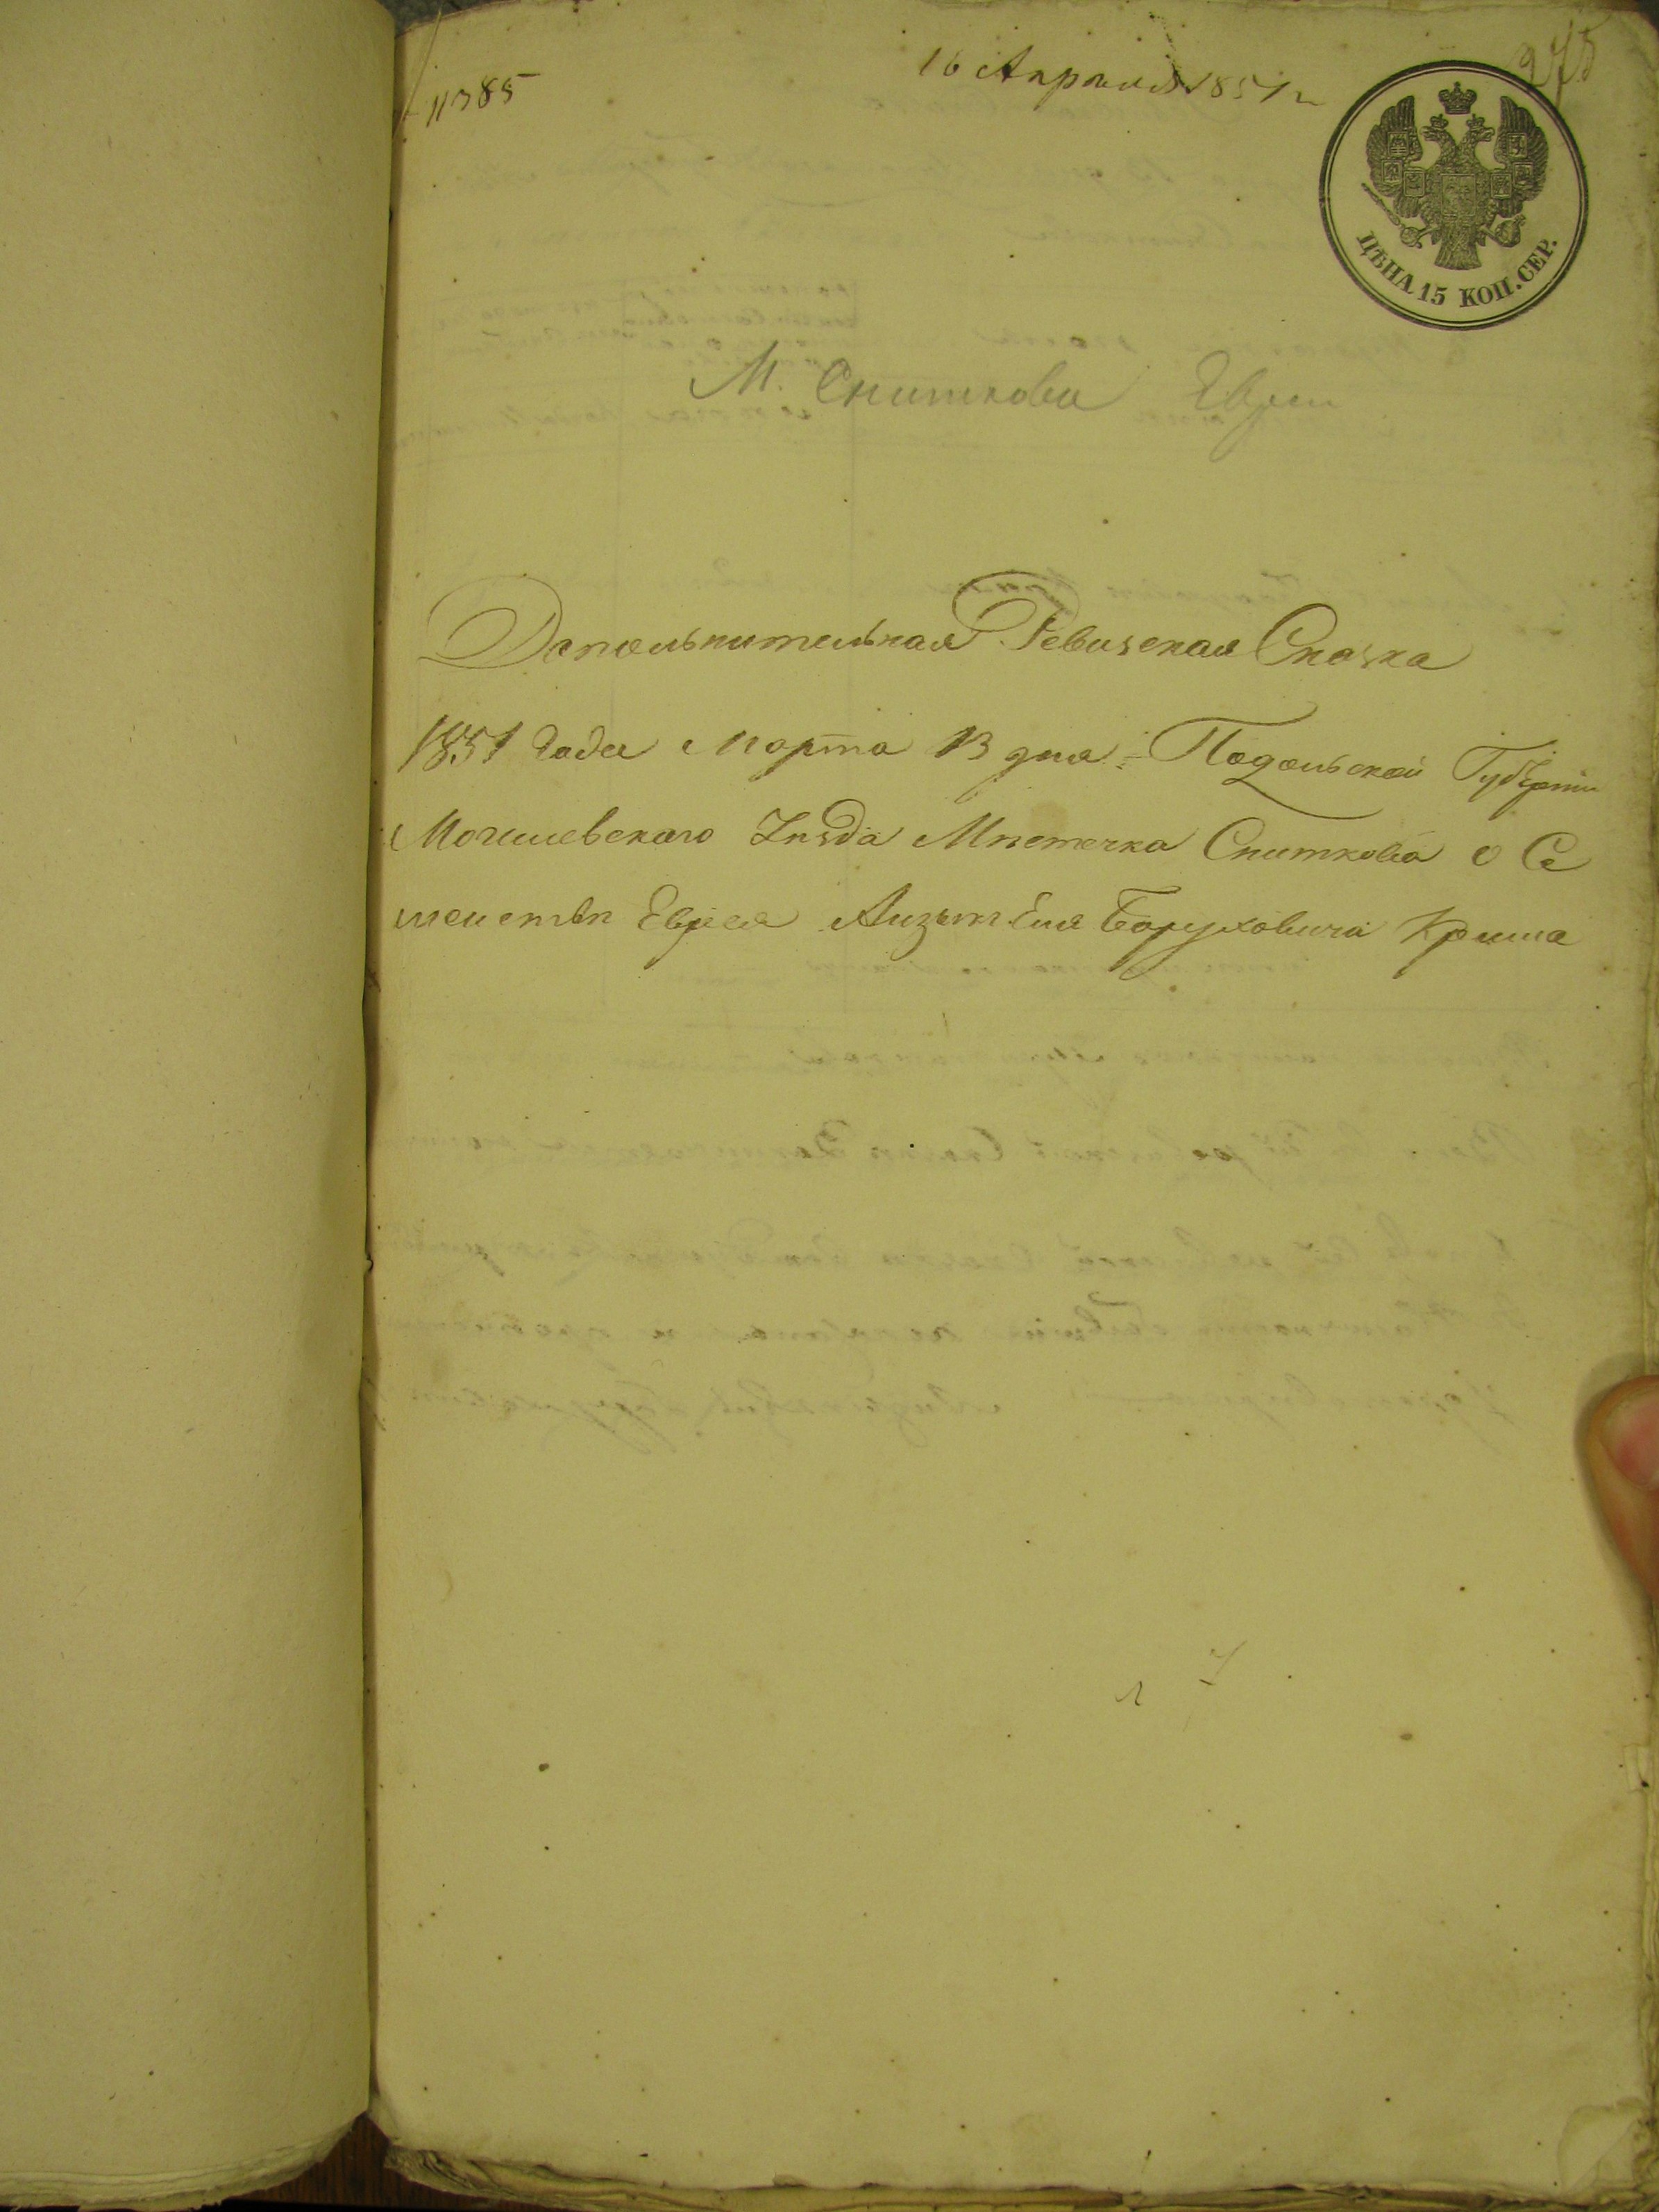 11385
16 Апреля 1851 г
275
ЦѢНА 15 КОП. СЕР.
М. Сниткова Евреи
Дополнительная Ревизская Сказка
1851 Года Марта 13 дня Подольской Губерніи
Могилевскаго Уезда Мѣстечка Сниткова о Се
мействѣ Еврея Боруховича Крима